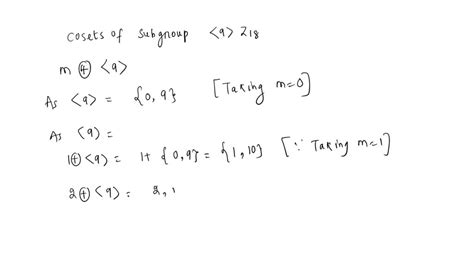 cosets of subgroup <9> Z18
m ⊕ <9>
As <9> = {0, 9} [Taking m=0]
As <9> =
1⊕<9> = 1+ {0,9} = {1,10} [∵ Taking m=1]
2⊕<9> = 2, 1